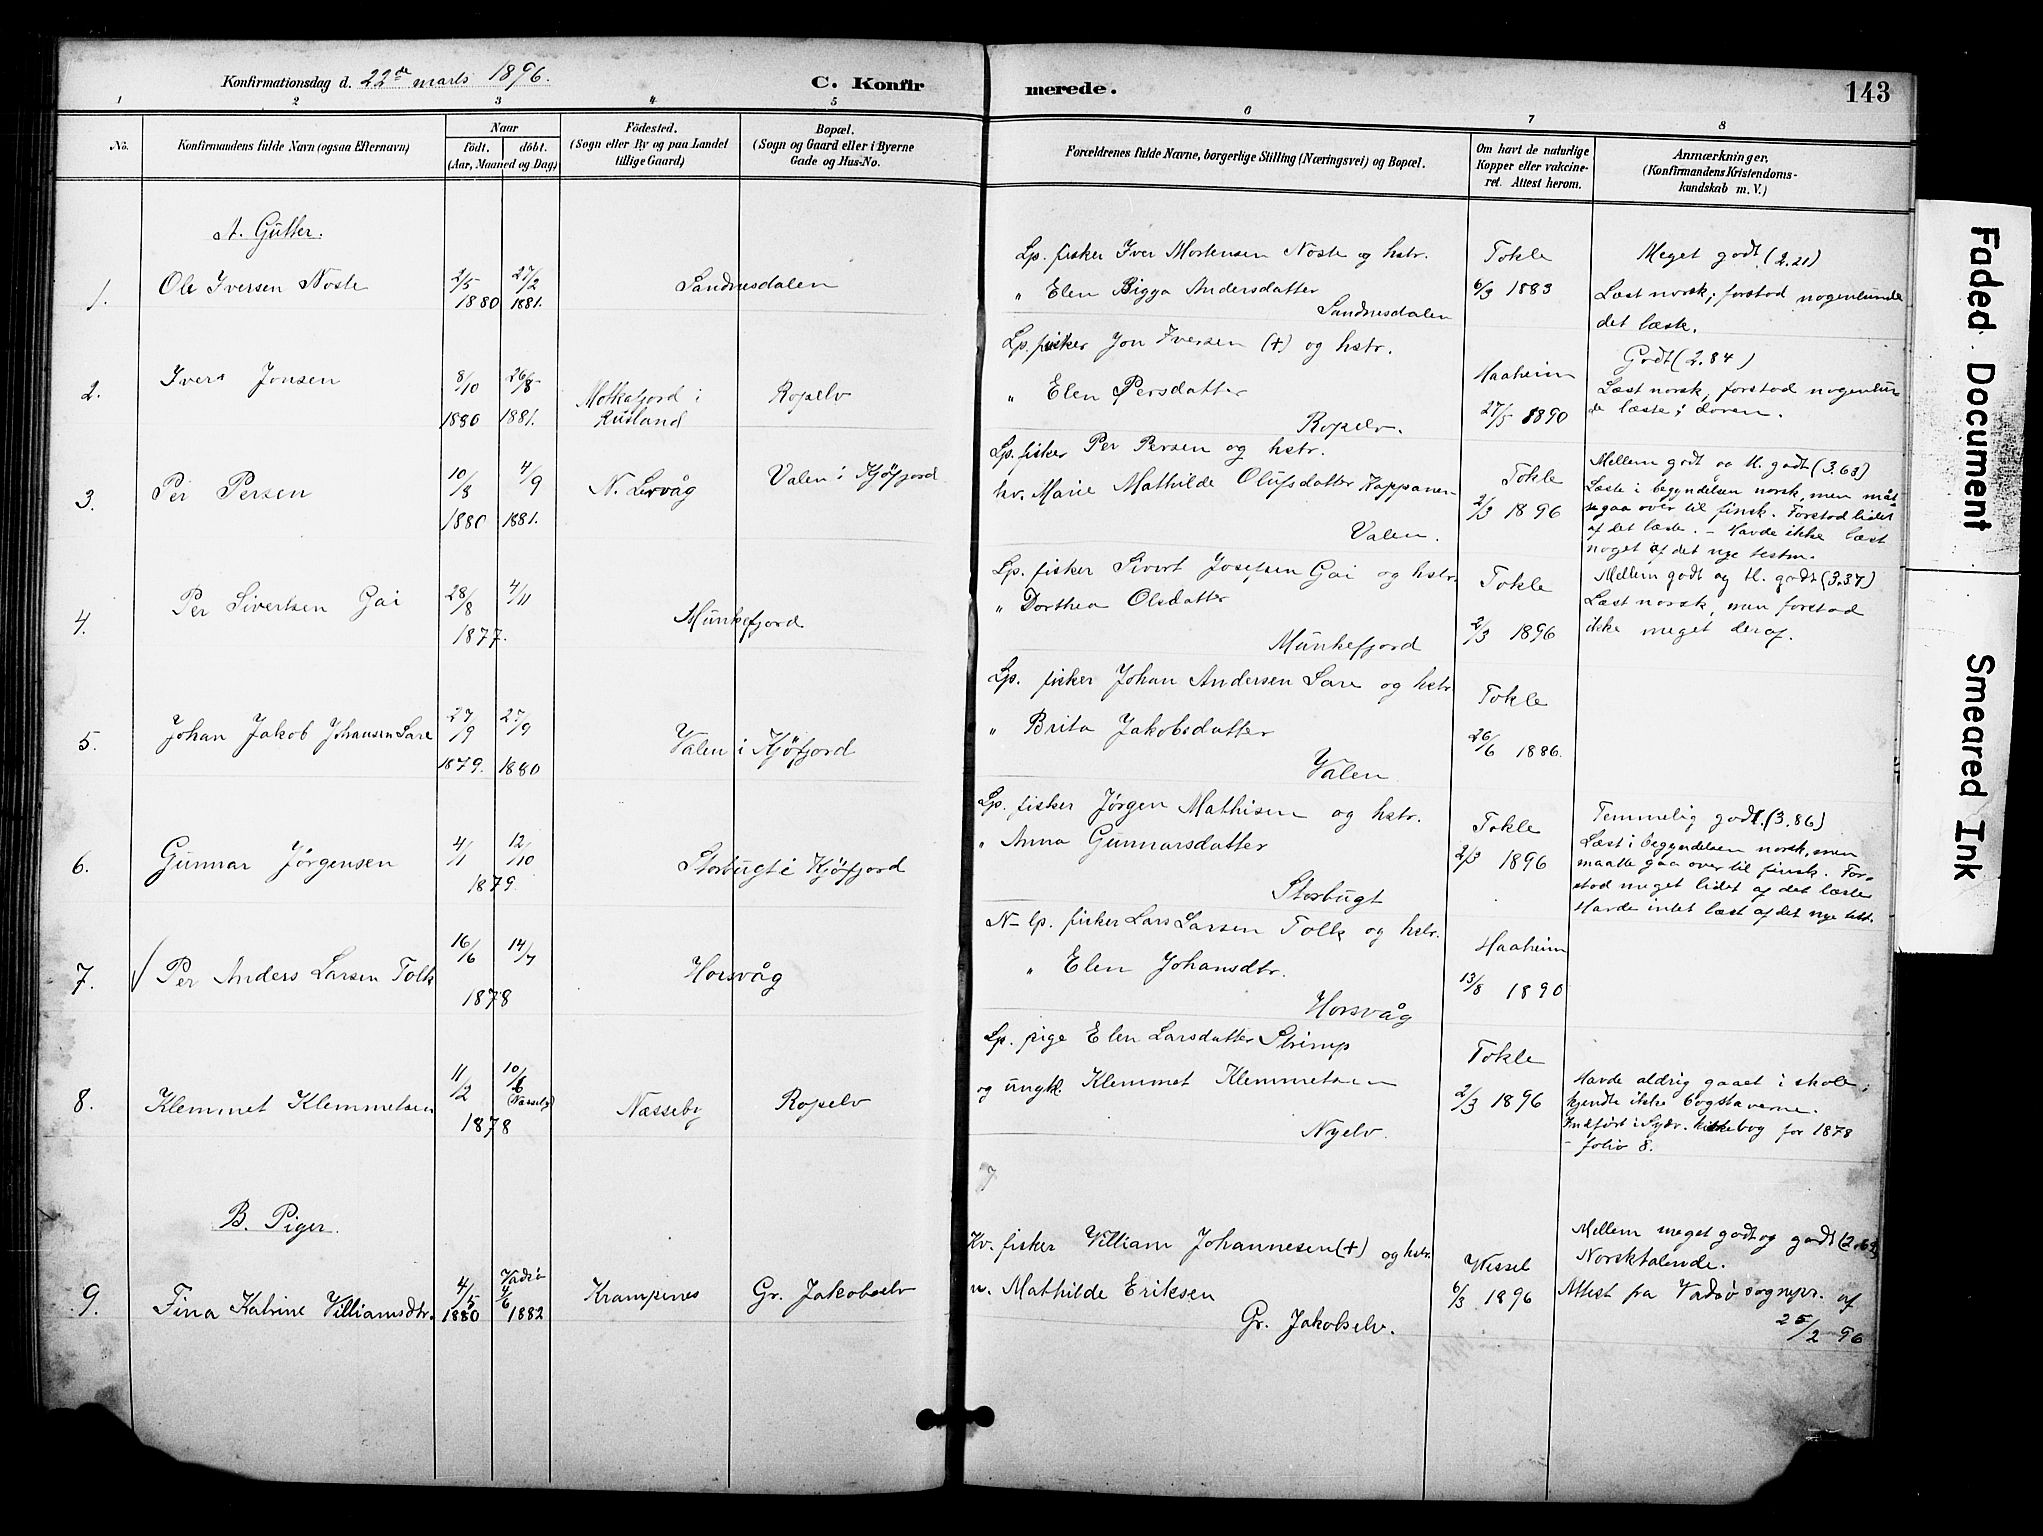 Konfirmationsdag d. 22de marts 1896.
C. Konfirmerede.
143
1 2 3 4 5 6 7 8
No.
Konfirmandens fulde Navn (ogsaa Efternavn)
Naar
födt. döbt.
(Aar, Maaned og Dag)
Födested.
(Sogn eller By og paa Landet
tillige Gaard)
Bopæl.
(Sogn og Gaard eller i Byerne
Gade og Hus-No.
Forældrenes fulde Navne, borgerlige Stilling (Næringsvei) og Bopæl.
Om havt de naturlige
Kopper eller vakcine-
ret. Attest herom.
Anmærkninger.
(Konfirmandens Kristendoms-
kundskab m. V.)
A. Gutter.
1. Ole Iversen Noste
2/5 1880
27/2 1881.
Sandnesdalen
Lp. fisker Iver Mortensen Noste og hstr.
" Elen Bigga Andersdatter
Sandnesdalen
Tokle
6/3 1883
Meget godt (2.21)
Læst norsk; forstod nogenlunde
det læste.
2. Iver Jonsen
8/10 1880
26/8 1881.
Motkafjord i
Rusland
Ropelv
Lp. fisker Jon Iversen (+) og hstr.
" Elen Persdatter
Ropelv.
Haaheim
27/5 1890
Godt (2.84)
Læst norsk, forstod nogenlun-
de læste;
3. Per Persen
10/8 1880
4/9 1881.
N. Lervåg
Valen i Kjøfjord
Lp. fisker Per Persen og hstr.
kv. Marie Mathilde Olufsdatter Kappanen
Valen.
Tokle
2/3 1896
Mellem godt og t. godt (3.63)
Læste i begyndelsen norsk, men måt-
te gaa over til finsk. Forstod lidet
af det læste. - Havde ikke læst
noget af det nye testm.
4. Per Sivertsen Gai
28/8 4/11
1877.
Munkefjord
Lp. fisker Sivert Josefsen Gai og hstr.
" Dorthea Olsdatter
Munkefjord
Tokle
2/3 1896
Mellem godt og t. godt (3.37)
Læst norsk, men forstod
ikke meget deraf.
5. Johan Jakob Johansen Sare
27/9 1879.
27/9 1880
Valen i Kjøfjord
Lp. fisker Johan Andersen Sare og hstr
" Brita Jakobsdatter
Valen
Tokle
26/6 1886.
6. Gunnar Jørgensen
4/1 12/10
1879.
Storbugt i Kjøfjord
Lp. fisker Jørgen Mathisen og hstr.
" Anna Gunnarsdatter
Storbugt
Tokle
2/3 1896
Temmelig godt. (3.86)
Læst i begyndelsen norsk, men
maatte gaa over til finsk. For-
stod meget lidet af det læste
Havde intet læst af det nye test.
7. Per Anders Larsen Tolk
16/6 14/7
1878
Horsvåg
N-lp. fisker Lars Larsen Tolk og hstr.
" Elen Johansdtr.
Horsvåg
Haaheim
13/8 1890
8. Klemmet Klemmetsen
11/2 10/6 (Næsseby)
1878
Næsseby
Ropelv
Lp. pige Elen Larsdatter Skrimp
og ungk. Klemmet Klemmetsen
Nyelv.
Tokle
2/3 1896
Havde aldrig gaaet i skole;
kjendte ikke bogstaverne.
Indført i Sydv. kirkebog for 1878
- folio 8.
B. Piger.
9. Tina Katrine Villiamsdtr.
4/5 1880
Vadsø 1882
Krampenes
Gr. Jakobselv
Kv. fisker Villiam Johannesen (+) og hstr.
n. Mathilde Eriksen
Gr. Jakobselv.
Wessel
6/3 1896
Mellem meget godt og godt
Norsktalende.
Attest fra Vadsø sognepr. af
25/2 96
Faded Document
Smeared Ink